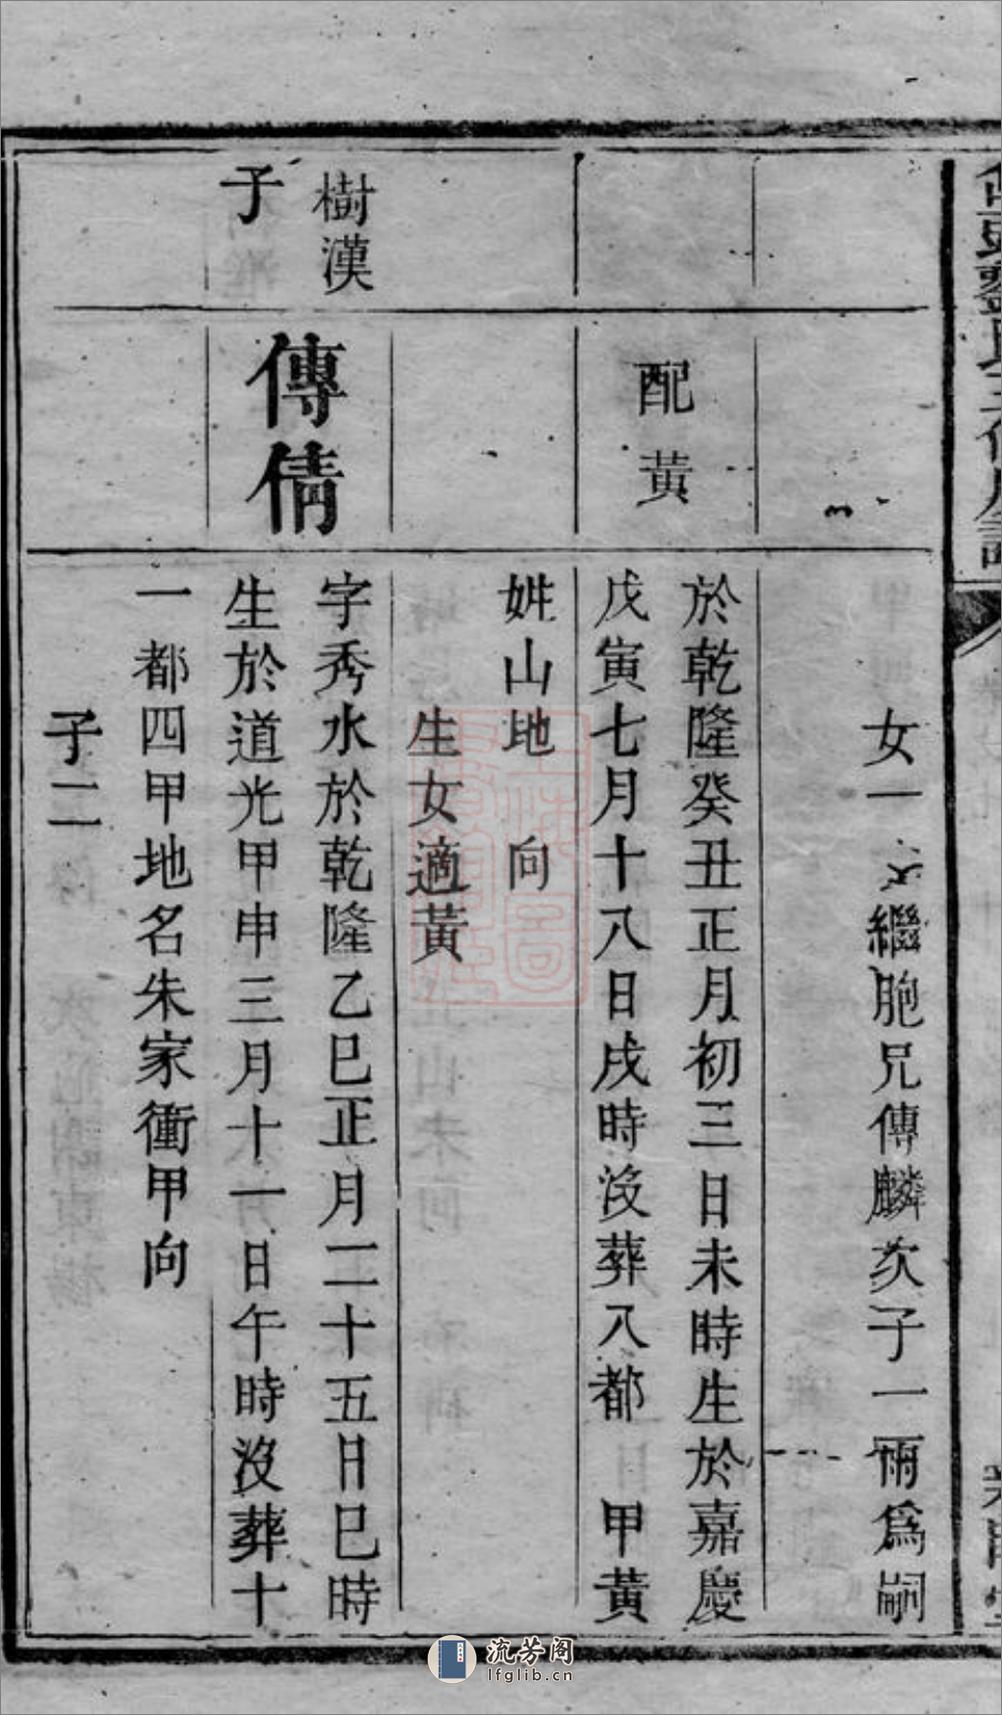 女一 繼胞兄傳麟次子一爾為嗣
配黃
於乾隆癸丑正月初三日未時生於嘉慶
戊寅七月十八日戌時没葬八都 甲黃
姓山地 向
生女適黃
樹漢
子
傳倩
字秀水於乾隆乙巳正月二十五日巳時
生於道光甲申三月十一日午時没葬十
一都四甲地名朱家衝甲向
子二
流芳阁
lfglib.cn